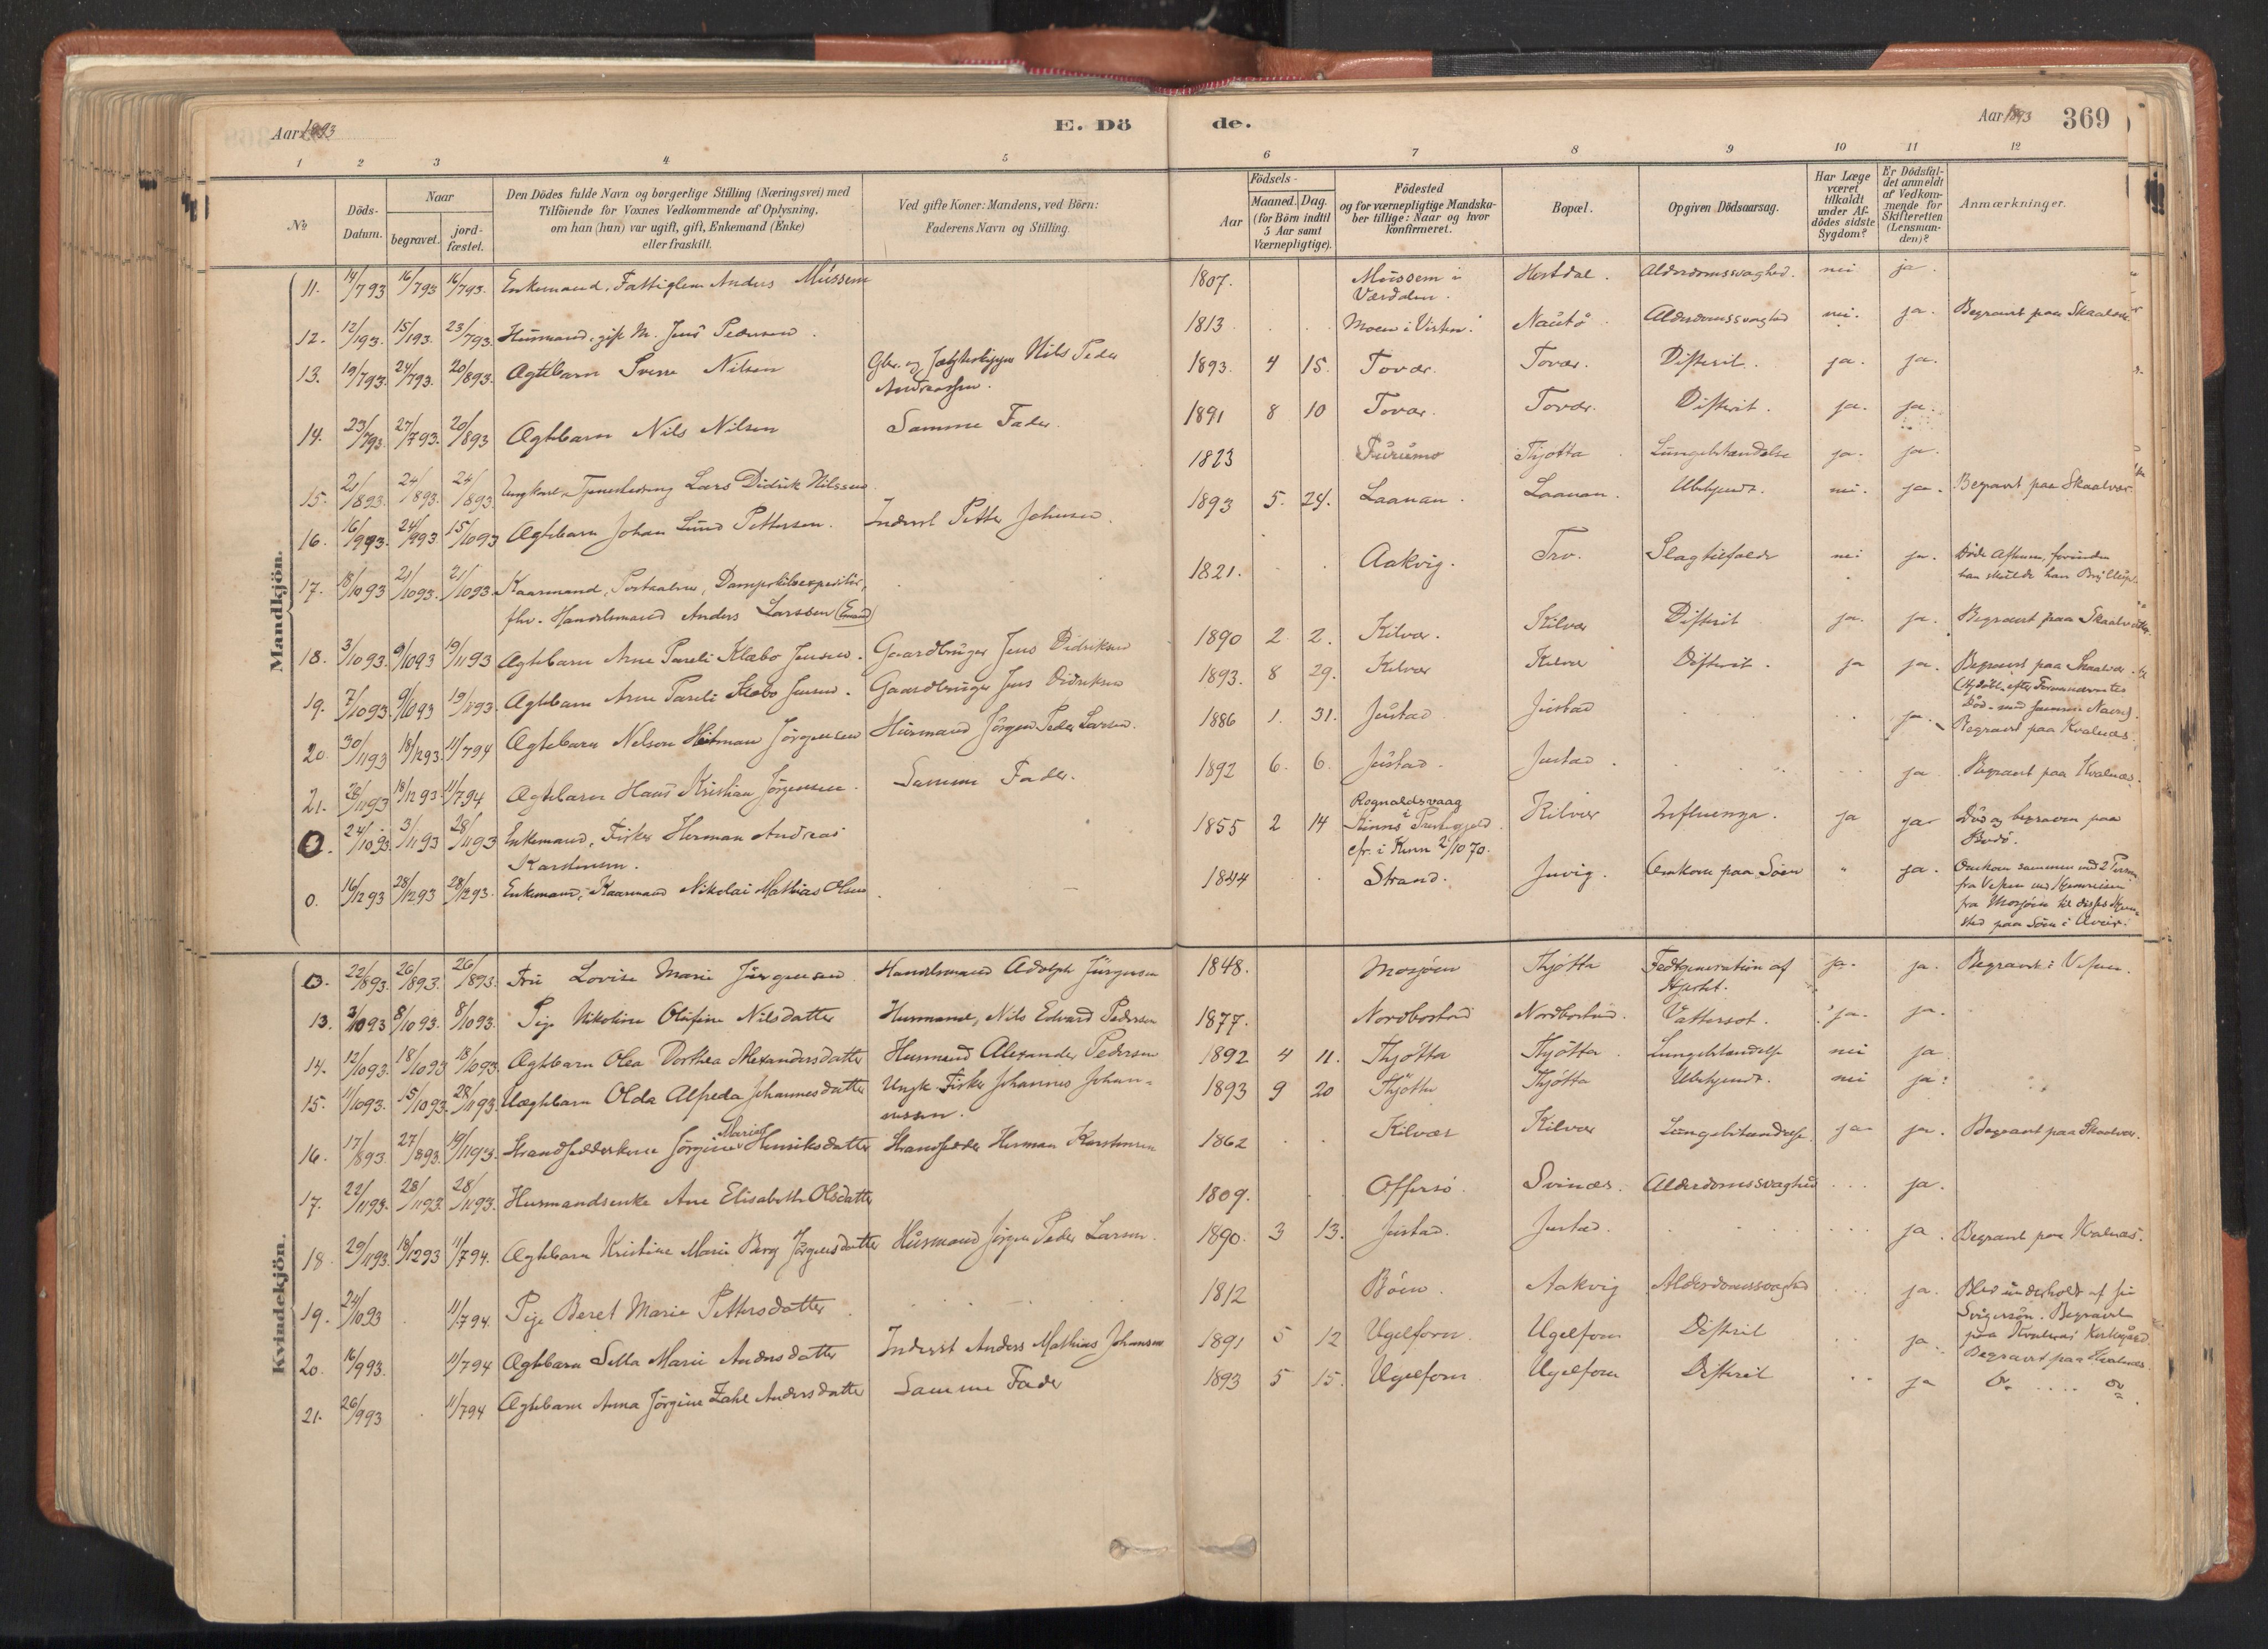 Aar 1893
E. Dö
de.
Aar 1893
369
1 2 3 4 5 6 7 8 9 10 11 12
No
Döds-Datum.
Naar
begravet.
jord-fæstet.
Den Dödes fulde Navn og borgerlige Stilling (Næringsvei) med
Tilföiende for Voxnes Vedkommende af Oplysning,
om han (hun) var ugift, gift, Enkemand (Enke)
eller fraskilt.
Ved gifte Koner: Mandens, ved Börn:
Faderens Navn og Stilling.
Födsels-
Aar
Maaned. Dag.
(for Börn indtil
5 Aar samt
Værnepligtige).
Födested
og for værnepligtige Mandska-
ber tillige: Naar og hvor
konfirmeret.
Bopæl.
Opgiven Dödsaarsag.
Har Læge
været
tilkaldt
under Af-
dödes sidste
Sygdom?
Er Dödsfal-
det anmeldt
af Vedkom-
mende for
Skifteretten
(Lensman-
den)?
Anmærkninger.
Mandkjön.
11. 14/793 16/793 16/793. Enkemand, Fattiglem Anders Müssem 1807. Müssem i Værdalen. Hestdal. Alderdomssvaghed. nei ja.
12. 12/193. 15/193. 23/793. Husmand, gift M. Jens Pedersen. 1813 Moen i Vefsn. Nautö Alderdomssvaghed nei. ja. Begravet paa Skaalvær
13. 19/793. 24/793. 20/893. Ægtebarn Sverre Nilsen Gbr. og Nils Peder Andreassen. 1893. 4 15. Tovær. Tovær. Difterit. ja. ja.
14. 23/793. 27/793. 20/893 Ægtebarn Nils Nilsen Samme Fader. 1891 8 10 Tovær. Tovær. Difterit. ja. ja.
15. 21/893. 24/893. 24/893. Ungkarl, Tjenestedreng Lars Didrik Nilssen. 1823 Furumo Thjøtta Lungebetændelse ja. ja.
16. 16/993. 24/993. 15/1093 Ægtebarn Johan Lund Pettersen. Inderst Petter Johnsen. 1893 5. 24. Laanan. Laanan. Ubekjendt. nei. ja. Begravet paa Skaalvær.
17. 18/1093 21/1093. 21/1093. Kaarmand, Postaabner, Dampskibsexpeditör,
fhv. Handelsmand Anders Larssen (Emand) 1821. Aakvig. Tro. Slagtilfælde nei ja. Döde Aftenen, forinden
han skulde han Bryllup.
18. 3/1093. 9/1093 19/1193 Ægtebarn Arne Pareli Klæbo Jensen. Gaardbruger Jens Didriksen 1890 2 2. Kilvær. Kilvær Difterit ja. ja. Begravet paa Skaalvær
19. 7/1093. 9/1093 19/1193. Ægtebarn Arne Pareli Klæbo Jensen. Gaardbruger Jens Didriksen 1893. 8 29. Kilvær Kilvær Difterit. ja ja. Begravet paa Skaalvær.
(Hjdöbt efter Forannævntes
Död - med samme Navn).
20. 30/1193 18/1293. 11/794 Ægtebarn Nelson Heitman Jörgensen Husmand Jörgen Peder Larsen. 1886 1. 31. Jüstad Jüstad ja. Begravet paa Kvalnæs.
21. 28/1193 18/1293 11/794 Ægtebarn Hans Kristian Jörgensen. Samme Fader. 1892 6. 6. Jüstad. Justad. ja Begravet paa Kvalnæs.
0. 24/1093 3/1193 28/1193 Enkemand, Fisker Herman Andreas
Karstensen. 1855 2 14 Rognaldsvaag
i Kinns Prestegjeld
cfr. i Kinn 2/10 70. Kilvær Influenza. ja ja Död og begraven paa
Bodö.
0. 16/1293 28/1293 28/1293. Enkemand, Kaarmand Nikolai Mathias Olsen 1844 Strand. Juvig. Omkom paa Söen " ja. Omkom sammen med 2 Person
fra Vefsen ved Hjemreisen
fra Mosjöen til disses Hjem-
sted paa Söen i
Kvindekjön.
0. 22/893. 26/893. 26/893. Fru Lovise Marie Jürgensen Handelsmand Adolph Jürgensen 1848. Mosjöen Thjøtta Fedtgeneration af
Hjertet. ja. ja. Begravet i Vefsen.
13. 3/1093 8/1093. 8/1093. Pige Nikoline Olüfine Nilsdatter Husmand, Nils Edvard Pedersen 1877. Nordbostad Nordbostad. Vattersot. ja. ja.
14. 12/1093. 18/1093 18/1093. Ægtebarn Olea Dorthea Alexandersdatter Husmand Alexander Pedersen 1892 4 11. Thjøtta Thjøtta Lungebetændelse nei ja
15. 11/1093. 15/1093. 28/1193. Uægtebarn Olda Alfreda Johannesdatter Ungk. Fisker Johannes Johan-
nessen. 1893 9 20 Thjøtta Thjøtta Ubekjendt. nei ja.
16. 17/893. 27/893. 19/1193. Strandsidderkone Jörgine Marie Henriksdatter Strandsidder Herman Karstensen 1862 Kilvær Kilvær Lungebetændelse. ja ja. Begravet paa Skaalvær.
17. 22/1193. 28/1193. 28/1193. Husmandsenke Ane Elisabeth Olsdatter 1809. Offersö. Svinæs. Alderdomssvaghed ja.
18 29/1193. 18/1293 11/794. Ægtebarn Kristine Marie Berg Jörgensdatter Husmand Jörgen Peder Larsen. 1890. 3 13. Justad. Justad. ja. Begravet paa Kvalnæs.
19. 24/1093 11/794. Pige Beret Marie Pettersdatter 1812 Böen. Aakvig Alderdomssvaghed ja. Blev underholdt af sin
Svigersön. Begravet
paa Kvalnæs Kirkegaard.
20. 16/993. 11/794 Ægtebarn Sella Marie Andersdatter Inderst Anders Mathias Johansen 1891 5 12 Ugelforn. Ugelforn Difterit ja. Begravet paa Kvalnæs.
21. 26/993 11/794 Ægtebarn Anna Jörgine Zahl Andersdatter Samme Fader 1893 5 15. Ugelforn Ugelforn Difterit ja